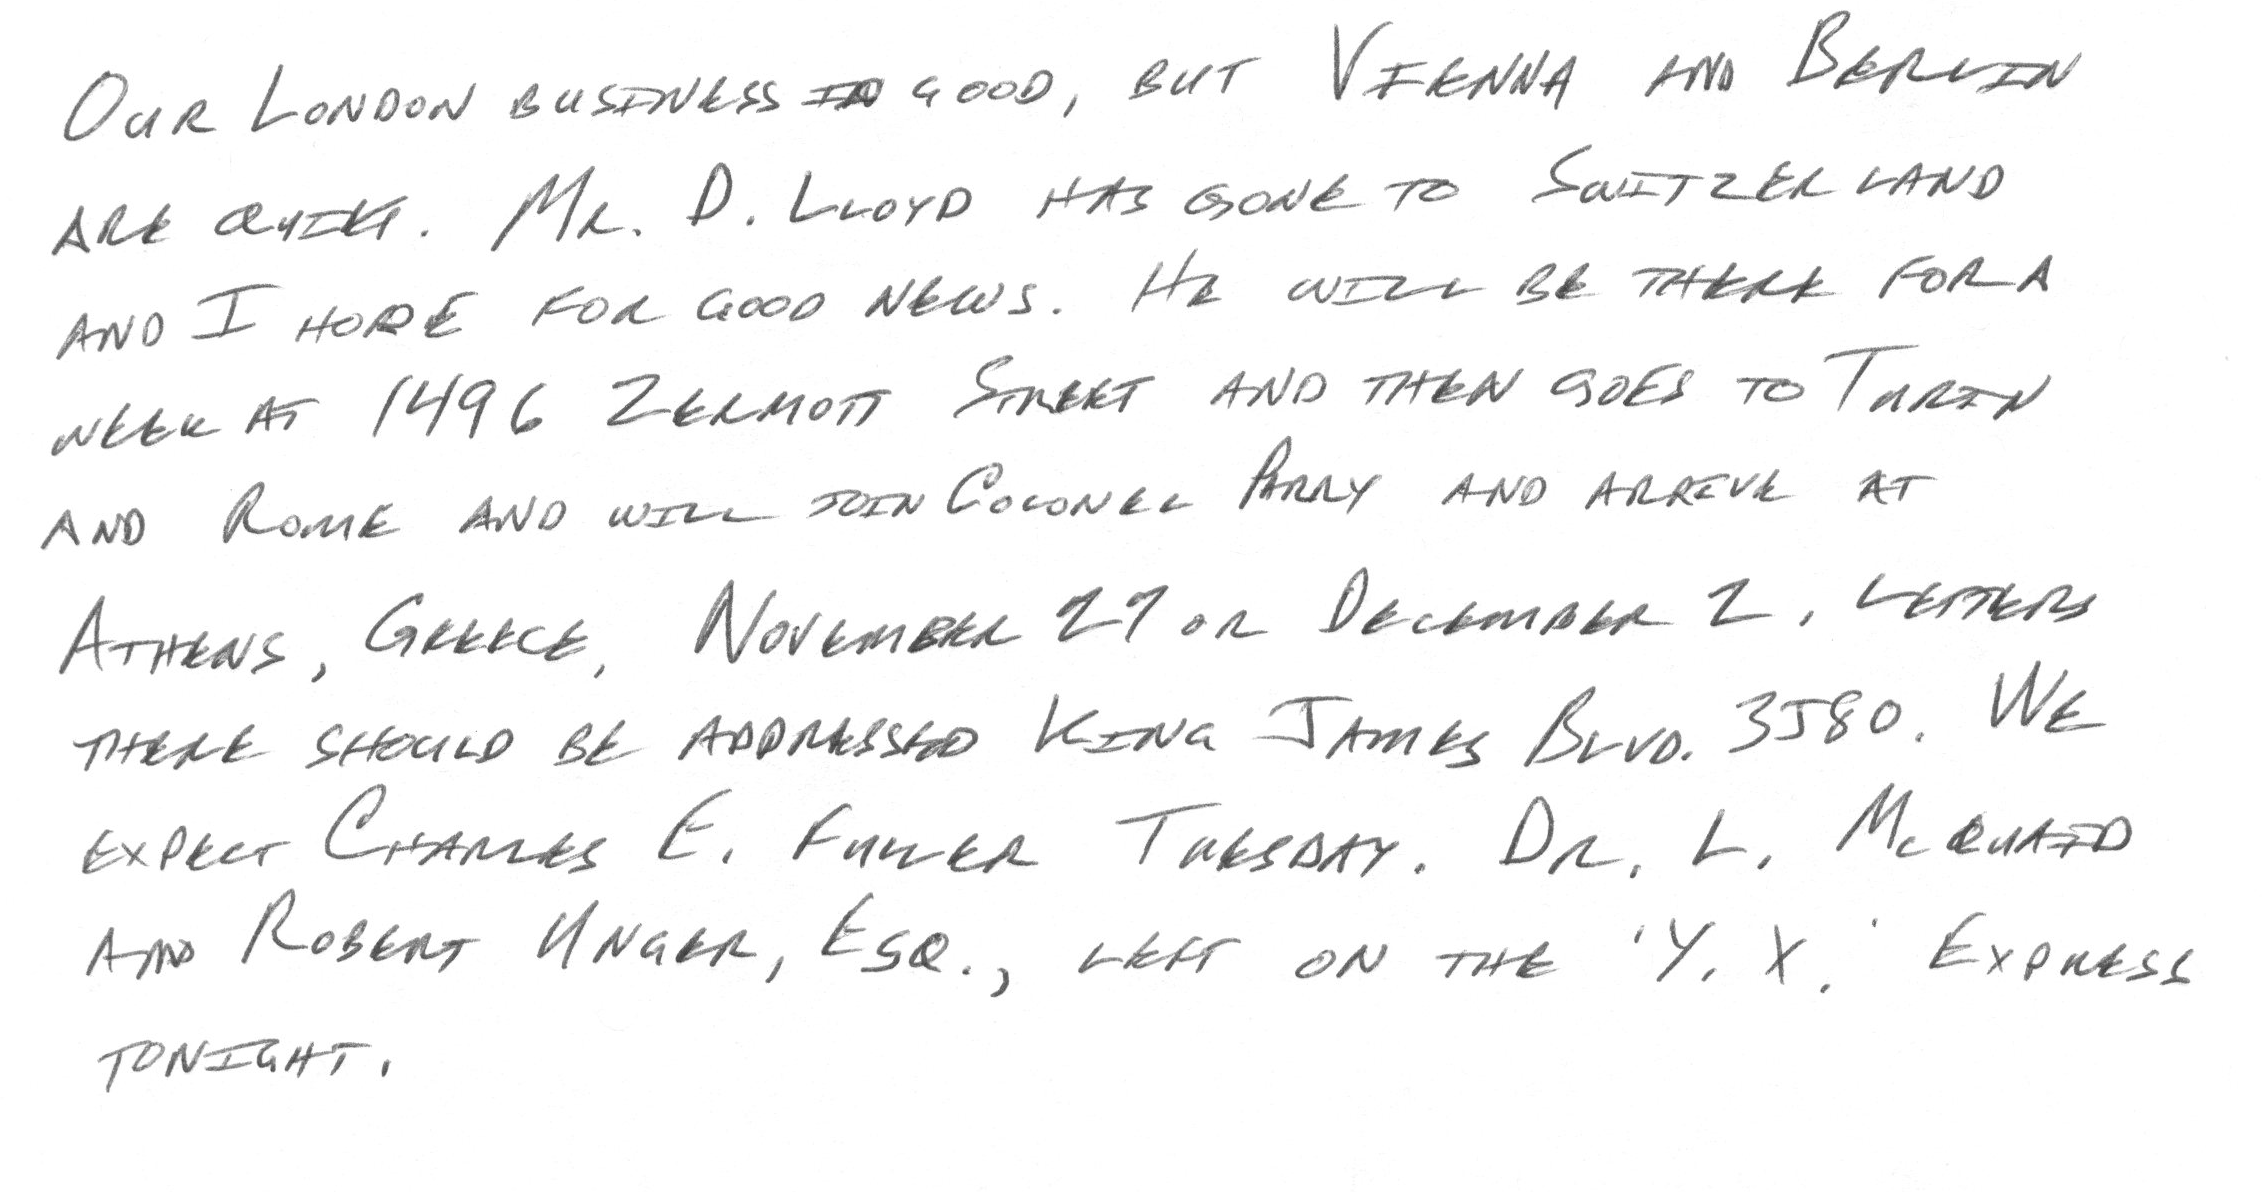 OUR LONDON BUSINESS IS GOOD, BUT VIENNA AND BERLIN
ARE QUIET. MR. D. LLOYD HAS GONE TO SWITZERLAND
AND I HOPE FOR GOOD NEWS. HE WILL BE THERE FOR A
WEEK AT 1496 ZERMOTT STREET AND THEN GOES TO TURIN
AND ROME AND WILL JOIN COLONEL PARRY AND ARRIVE AT
ATHENS, GREECE, NOVEMBER 27 OR DECEMBER 2. LETTERS
THERE SHOULD BE ADDRESSED KING JAMES BLVD. 3580. WE
EXPECT CHARLES E. FULLER TUESDAY. DR. L. MCQUAID
AND ROBERT UNGER, ESQ., LEFT ON THE 'Y. X.' EXPRESS
TONIGHT.